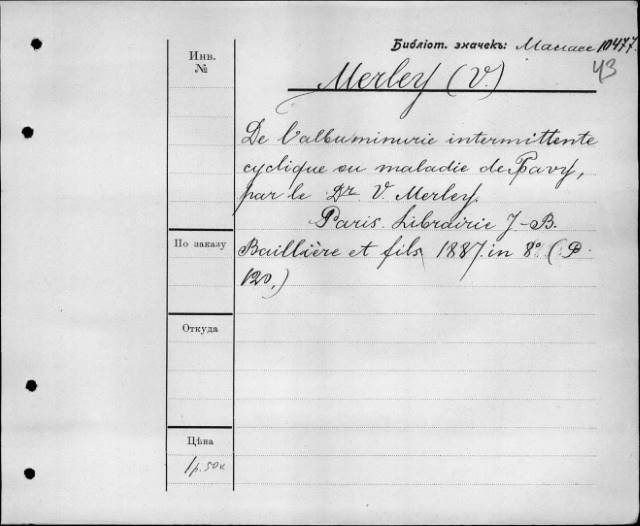 Библіот. значекъ: Масас 10477
43
Инв.
№
Merley (V.)
De l'albuminurie intermittente
cyclique ou maladie de Pavy,
par le Dr V. Merley.
Paris. Librairie J-B.
Baillière et fils 1887. in 8° (P.
120.)
По заказу
Откуда
Цѣна
1р. 50к